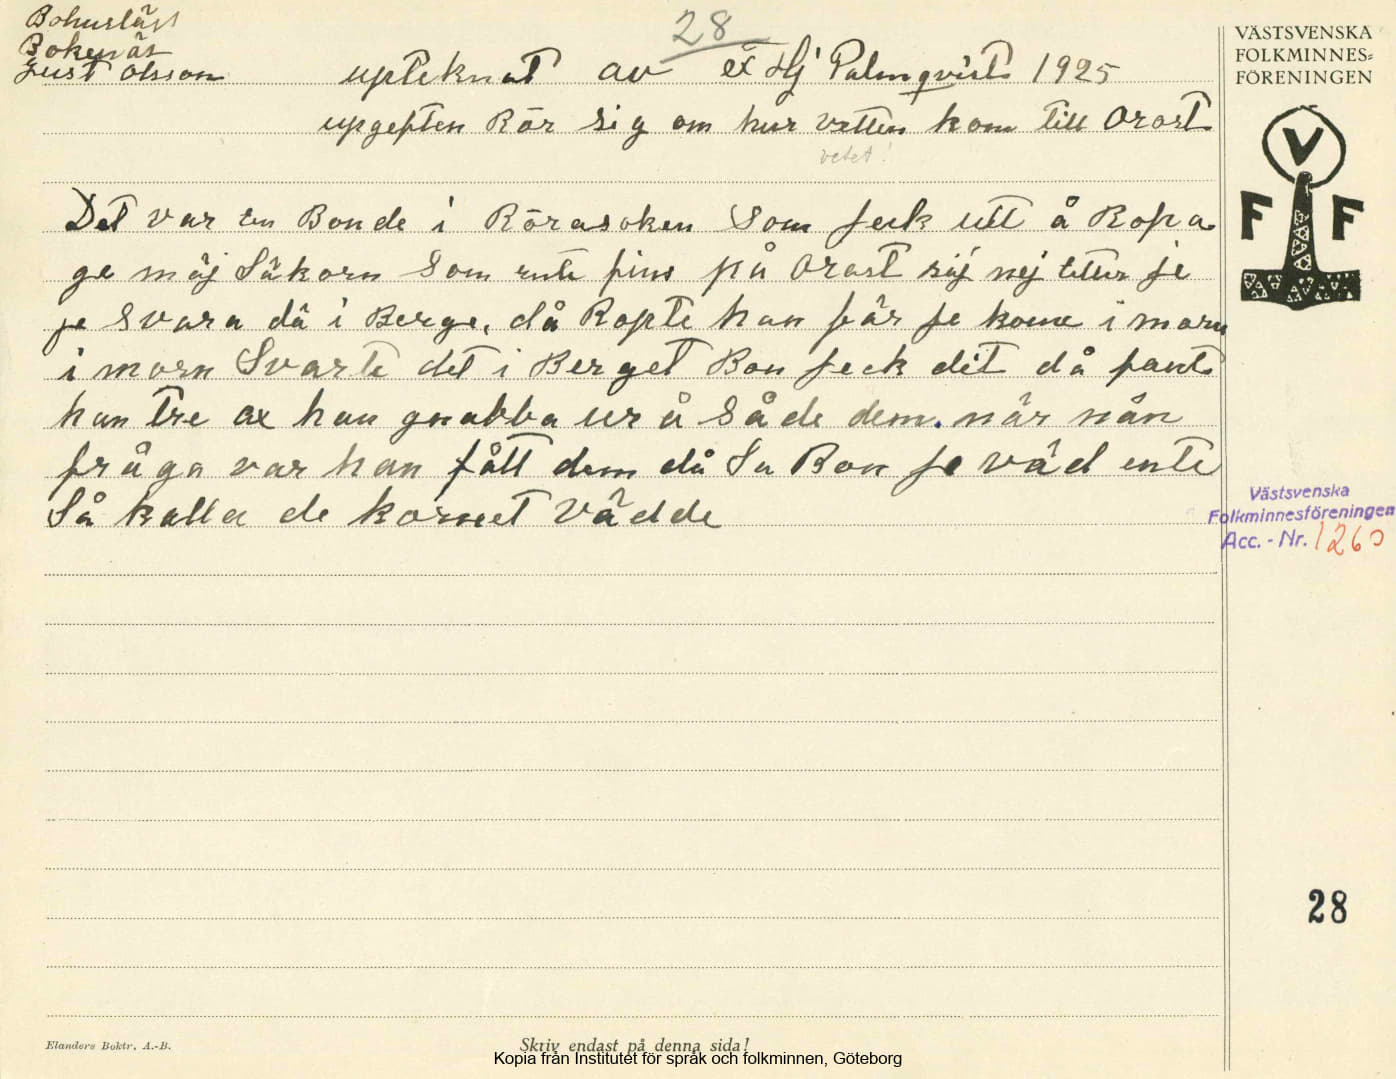 Bohuslän
Bokenäs
Just Olsson
28
upteknat av ex Hj Palmqvist 1925
upgepten Rör sig om hur vetten kom till Orost
vetet!
Det var en Bonde i Rörasoken Som feck utt å Ropa
ge mäj Såkorn Som ente fins på Orost säj nej etter je
je Svara dä i Berge, då Ropte han får je kome i morn
i morn Svarte det i Berget Bon feck dit då fant
han tre ax han gnabba ur å Såde dem. när nån
fråga var han fått dem då Sa Bon je väd ente
Så kalla de kornet Vädde
VÄSTSVENSKA
FOLKMINNES=
FÖRENINGEN
V
F F
Västsvenska
Folkminnesföreningen
Acc. - Nr. 1260
28
Elanders Boktr. A.-B.
Skriv endast på denna sida!
Kopia från Institutet för språk och folkminnen, Göteborg